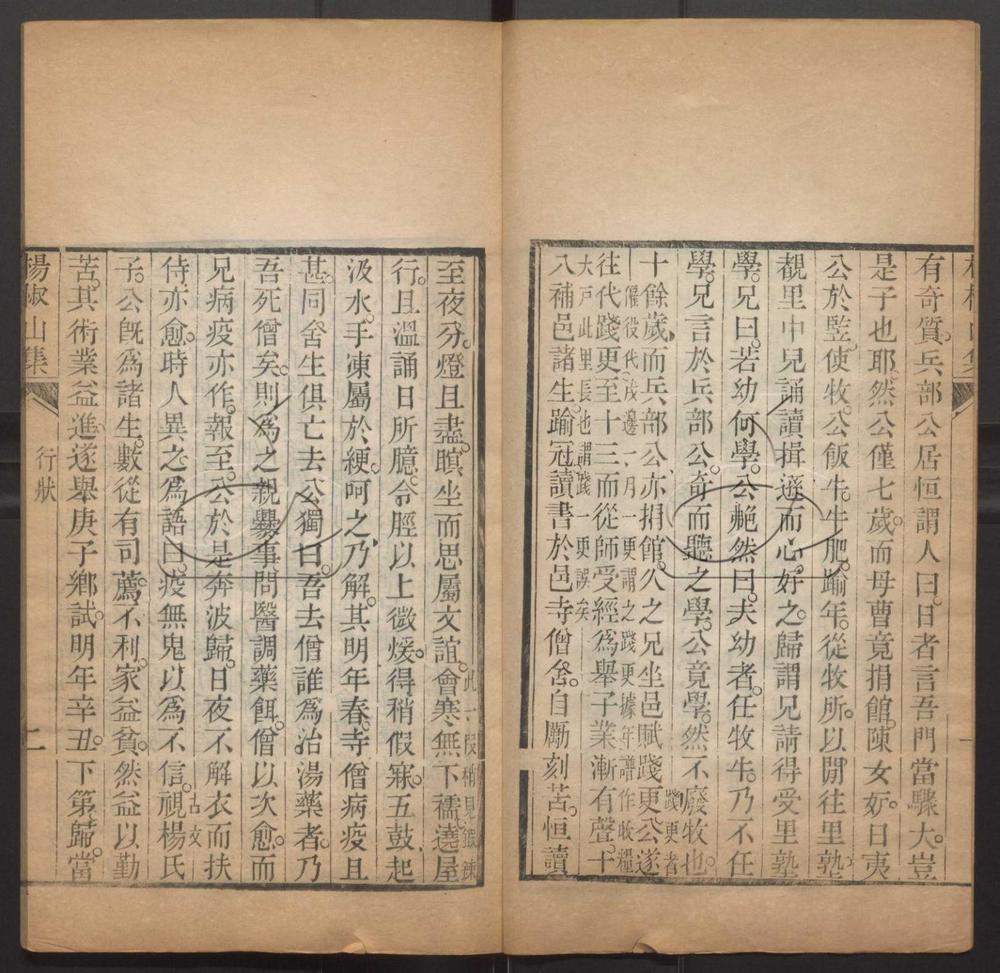 有奇質。兵部公居恒謂人曰。日者言吾門當驟大。豈
是子也耶。然公僅七歲。而母曹竟捐館。陳女妬。日夷
公於監。使牧。公飯牛。牛肥。踰年。從牧所。以閒往里塾。
覩里中兒誦讀揖遜。而心好之。歸謂兄請得受里塾
學。兄曰。若幼何學。公艴然曰。夫幼者。任牧牛。乃不任
學。兄言於兵部公。奇而聽之學。公竟學。然不廢牧也。
十餘歲。而兵部公亦捐館。久之。兄坐邑賦踐更。公遂
踐更者僱役代戍邊一月一更謂之踐更據年譜作收糧大戶此里長也謂踐更誤矣
往代踐更。至十三而從師受經。為舉子業。漸有聲。十
八補邑諸生。踰冠讀書於邑寺僧舍。自勵刻苦。恒讀
至夜分。燈且盡。瞑坐而思屬文誼。會寒無下襦。遶屋
行。且溫誦日所臆。令脛以上微煖。得稍假寐。五鼓起
汲水。手凍屬於綆。呵之乃解。其明年春。寺僧病疫且
甚。同舍生俱亡去。公獨曰。吾去僧誰為治湯藥者。乃
吾死僧矣。則為之親爨事。問醫調藥餌。僧以次愈。而
兄病疫亦作。報至。公於是奔波歸。日夜不解衣而扶
侍。亦愈。時人異之。為語曰。疫無鬼以為不信。視楊氏
古文
子。公既為諸生。數從有司薦。不利。家益貧。然益以勤
苦。其術業益進。遂舉庚子鄉試。明年辛丑。下第歸。當
楊椒山集
行狀
二